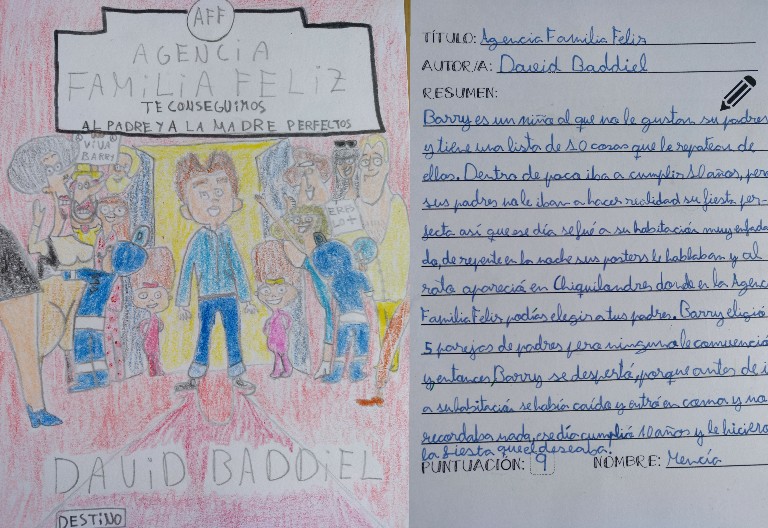 AFF
AGENCIA
FAMILIA FELIZ
TE CONSEGUIMOS
AL PADRE Y A LA MADRE PERFECTOS
VIVA
BARRY
ERES
DAVID BADDIEL
DESTINO
TÍTULO: Agencia Familia Feliz
AUTOR/A: David Baddiel
RESUMEN:
Barry es un niño al que no le gustan su padres
y tiene una lista de 10 cosas que le repatean de
ellos. Dentro de poco iba a cumplir 10 años, pero
sus padres no le iban a hacer realidad su fiesta per-
fecta así que ese día se fué a su habitación muy enfada
do, de repente en la noche sus posters le hablaban y al
rato apareció en Chiquilandres donde en la Agenc
Familia Feliz podías elegir a tus padres. Barry eligió
5 parejas de padres pero ninguna le convenció
y entonces Barry se despertó porque antes de i
a su habitación se había caído y entró en coma y no
recordaba nada, ese día cumplió 10 años y le hiciero
la fiesta que el deseaba.
PUNTUACIÓN: 9 NOMBRE: Mencía